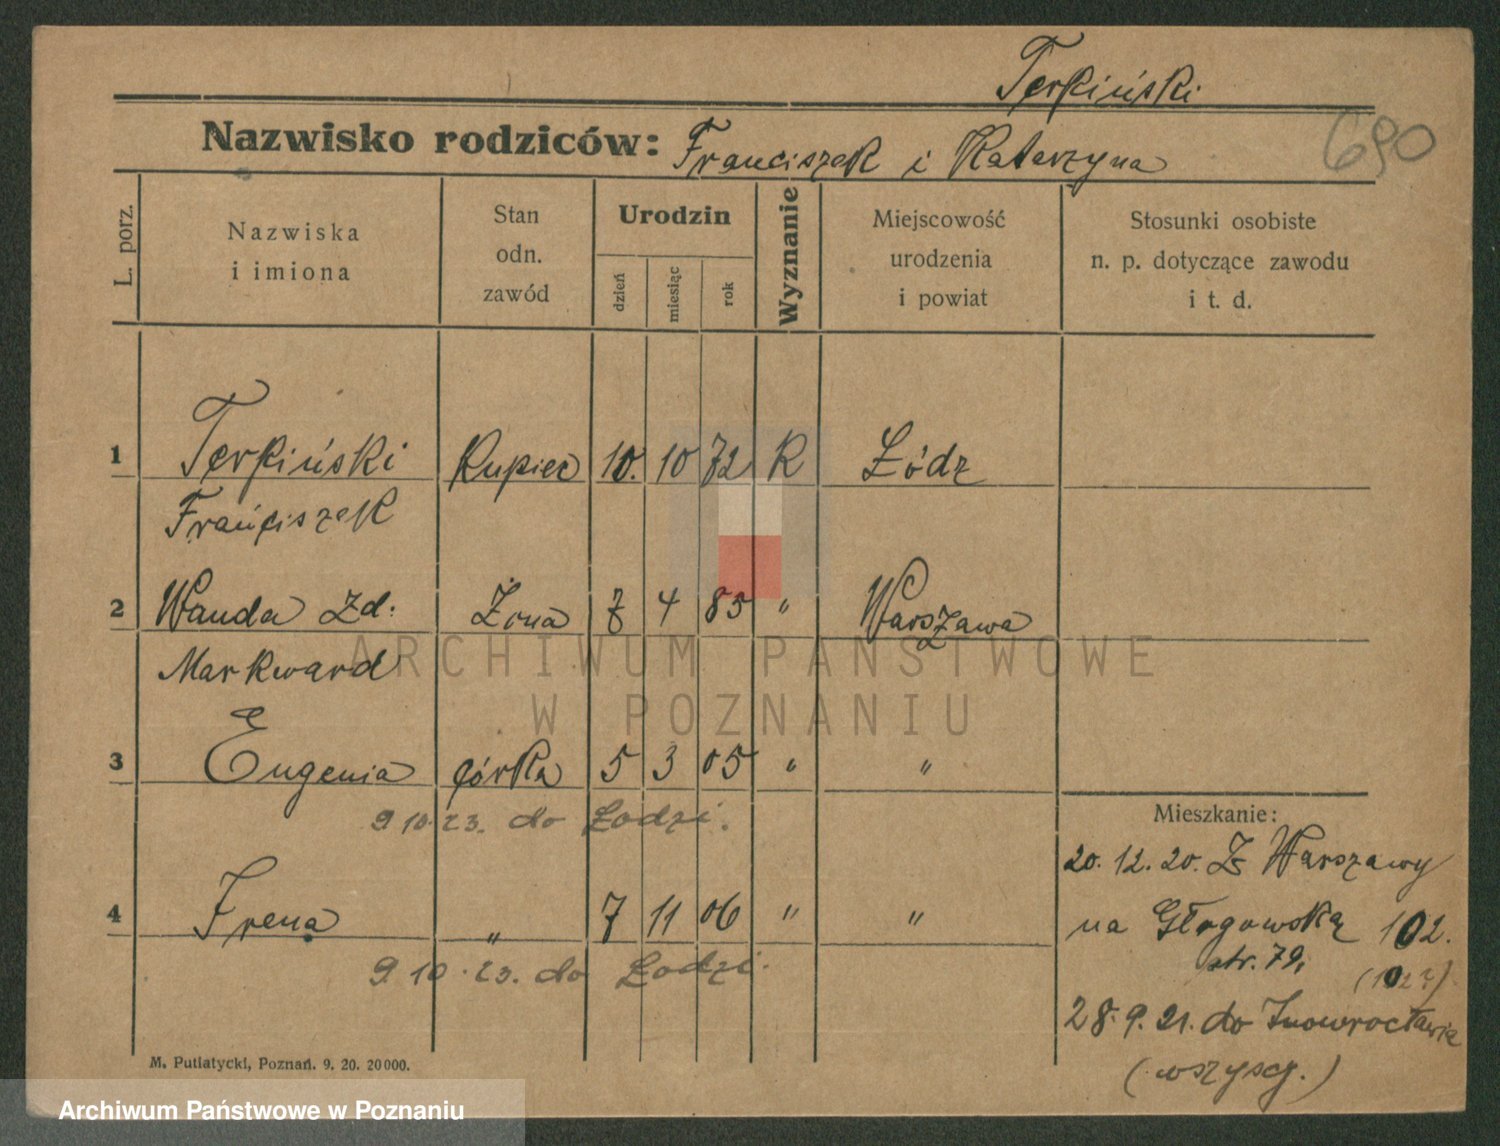 Terpiński
Nazwisko rodziców: Franciszek i Katarzyna
690
L. porz.
Nazwiska
i imiona
Stan
odn.
zawód
Urodzin
dzień
miesiąc
rok
Wyznanie
Miejscowość
urodzenia
i powiat
Stosunki osobiste
n. p. dotyczące zawodu
i t. d.
1 Terpiński Kupiec 10. 10 72 R Łódz
Franciszek
2 Wanda Zd: Żona 7 4 85 " Warszawa
Markward
3 Eugenia córka 5 3 05 " "
9 10. 23. do Łodzi.
4 Irena " 7 11 06 " "
9. 10. 23. do Łodzi.
Mieszkanie:
20. 12. 20. Z Warszawy
na Głogowską 102.
str. 79,
(102?)
28. 9. 21. do Inowrocławia
(wszyscy.)
M. Putiatycki, Poznań. 9. 20. 20000.
ARCHIWUM PAŃSTWOWE
W POZNANIU
Archiwum Państwowe w Poznaniu